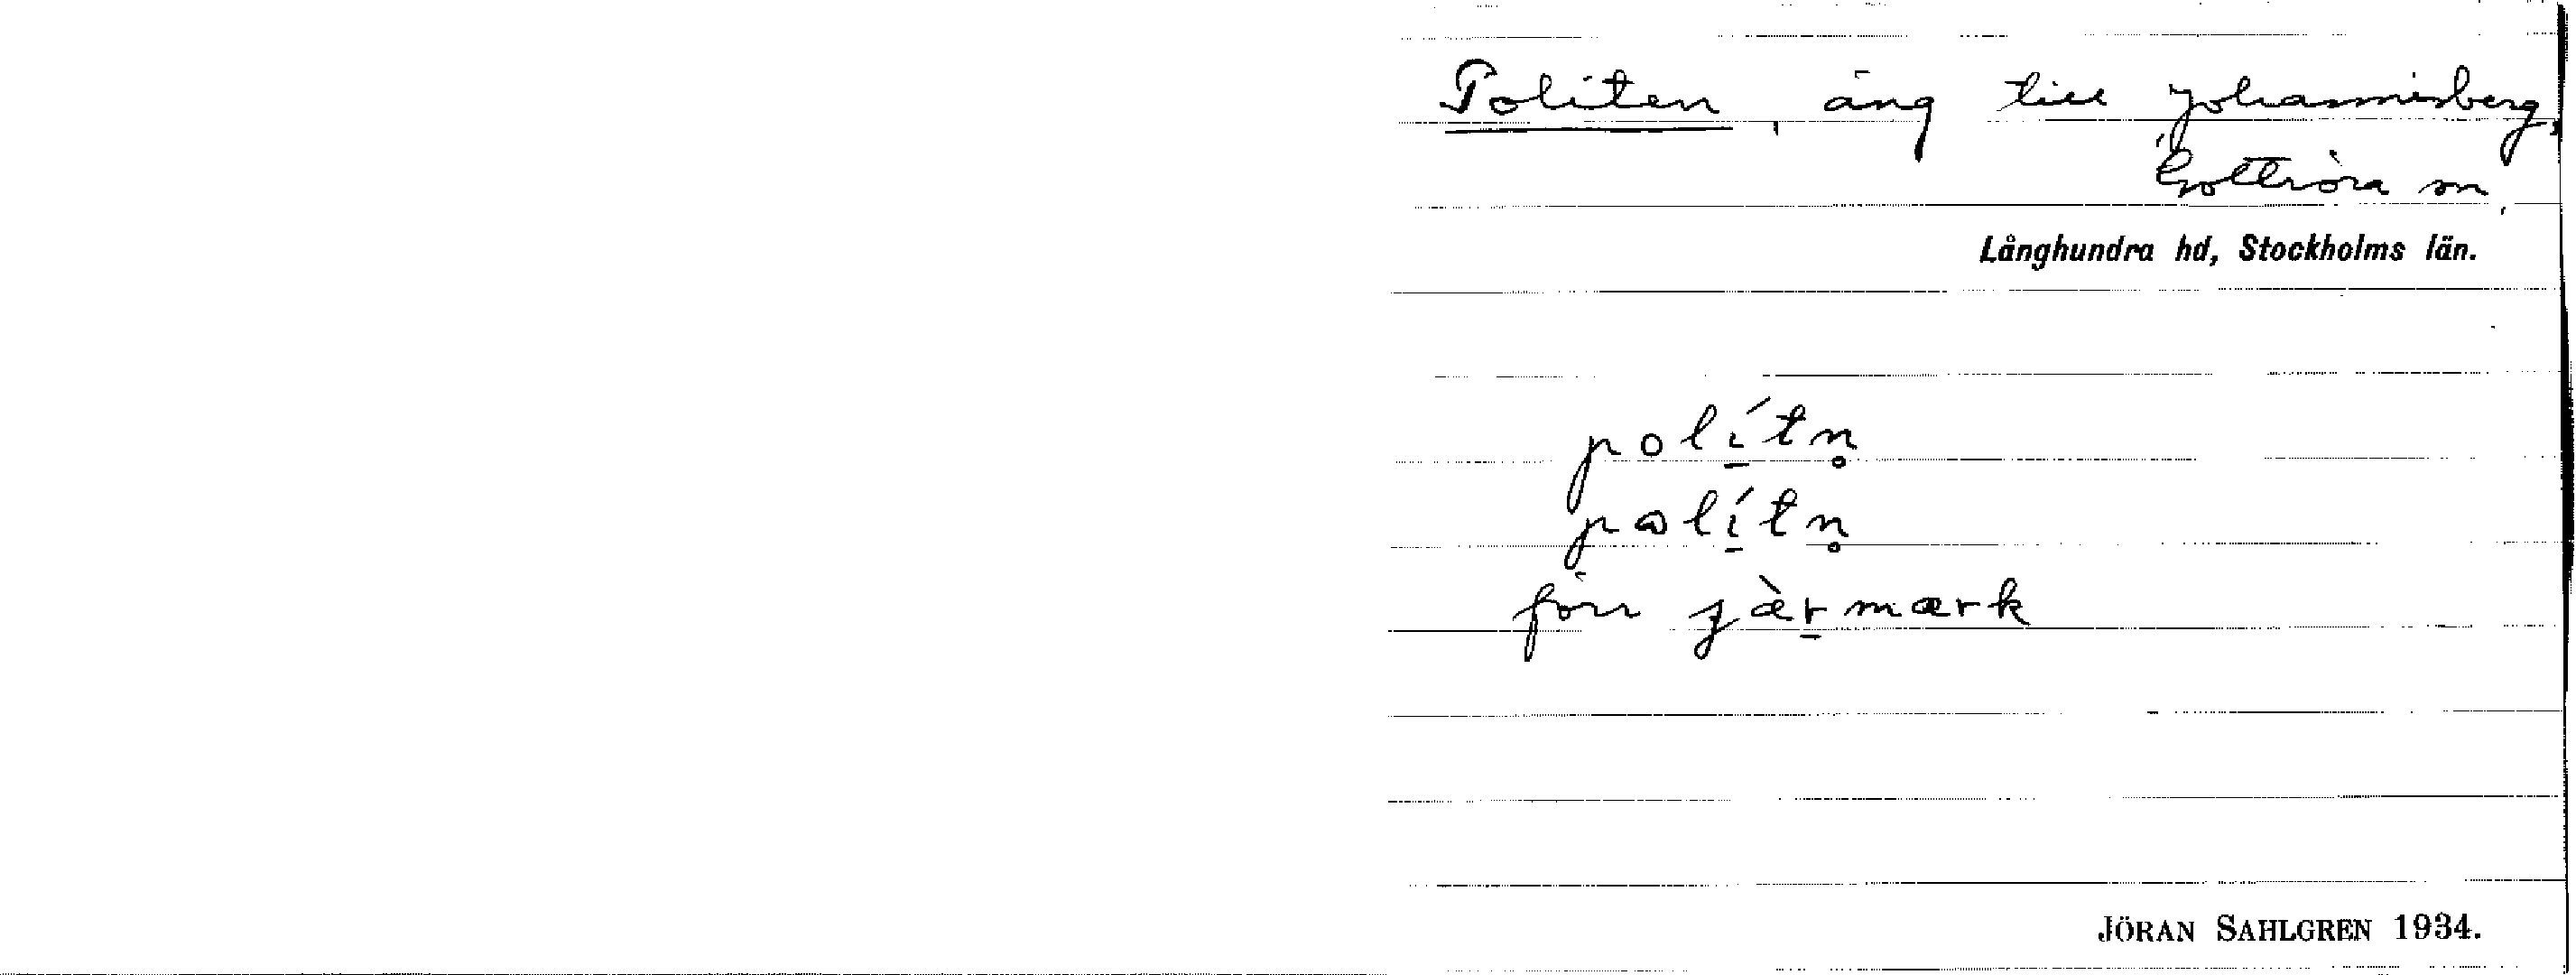 Politen, äng till Johannisberg,
Gottröra sn,
Långhundra hd, Stockholms län.
polí̱tn̥
pɷlí̱tn̥
förr jæ̀ṟmærk
JÖRAN SAHLGREN 1934.